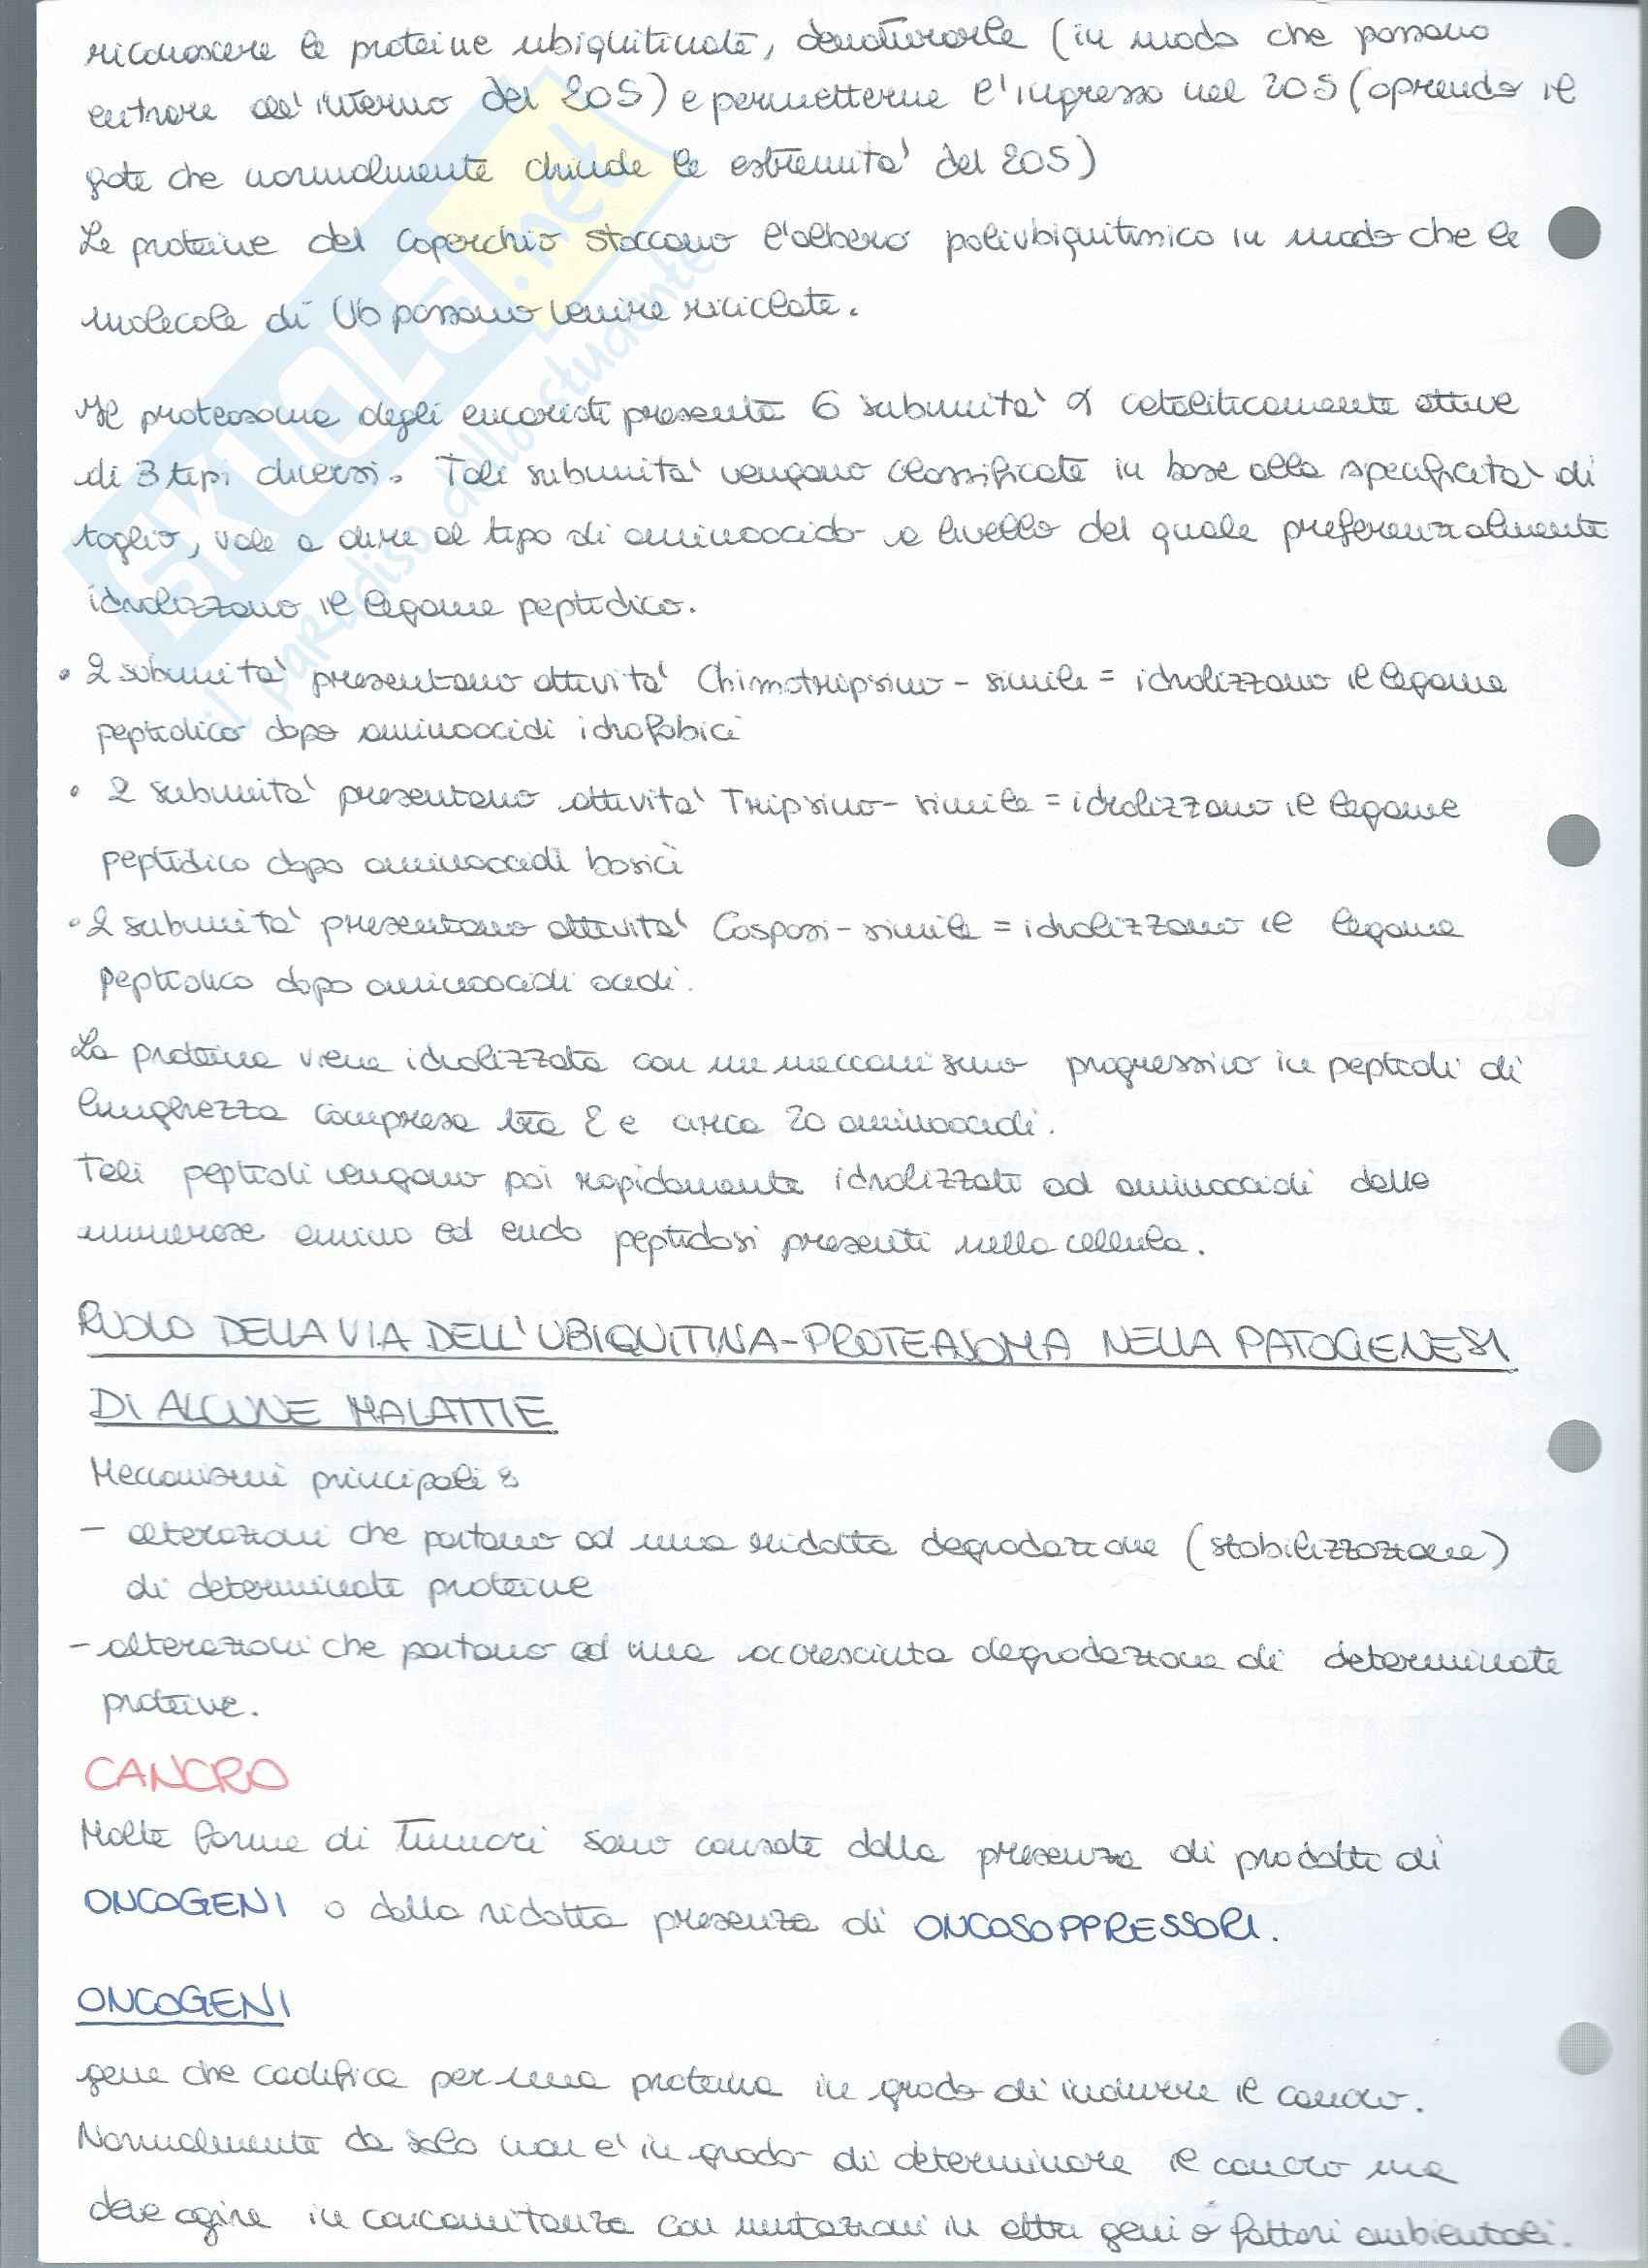 riconoscere le proteine ubiquitinate, denaturarle (in modo che possano
entrare all'interno del 20S) e permetterne l'ingresso nel 20S (aprendo il
gate che normalmente chiude le estremita' del 20S)
Le proteine del coperchio staccano l'albero poliubiquitinico in modo che le
molecole di Ub possano venire riciclate.
Il proteosoma degli eucarioti presenta 6 subunita' α cataliticamente attive
di 3 tipi diversi. Tali subunita' vengono classificate in base alla specificita' di
taglio, vale a dire al tipo di aminoacido a livello del quale preferenzialmente
idrolizzano il legame peptidico.
• 2 subunita' presentano attivita' Chimotripsino-simile = idrolizzano il legame
peptidico dopo aminoacidi idrofobici
• 2 subunita' presentano attivita' Tripsino-simile = idrolizzano il legame
peptidico dopo aminoacidi basici
• 2 subunita' presentano attivita' Caspasi-simile = idrolizzano il legame
peptidico dopo aminoacidi acidi.
La proteina viene idrolizzata con un meccanismo progressivo in peptidi di
lunghezza compresa tra 2 e circa 20 aminoacidi.
Tali peptidi vengono poi rapidamente idrolizzati ad aminoacidi dalle
numerose amino ed endo peptidasi presenti nella cellula.
RUOLO DELLA VIA DELL'UBIQUITINA-PROTEASOMA NELLA PATOGENESI
DI ALCUNE MALATTIE
Meccanismi principali:
- alterazioni che portano ad una ridotta degradazione (stabilizzazione)
di determinate proteine
- alterazioni che portano ad una accresciuta degradazione di determinate
proteine.
CANCRO
Molte forme di tumori sono causate dalla presenza di prodotti di
ONCOGENI o dalla ridotta presenza di ONCOSOPPRESSORI.
ONCOGENI
gene che codifica per una proteina in grado di indurre il cancro.
Normalmente da solo non e' in grado di determinare il cancro ma
deve agire in concomitanza con mutazioni in altri geni o fattori ambientali.
SKUOLA.net
il paradiso dello studente